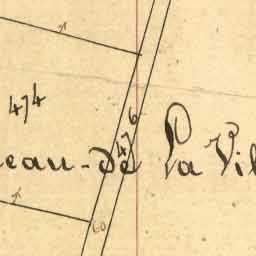 474
476
eau-de La Vil
60